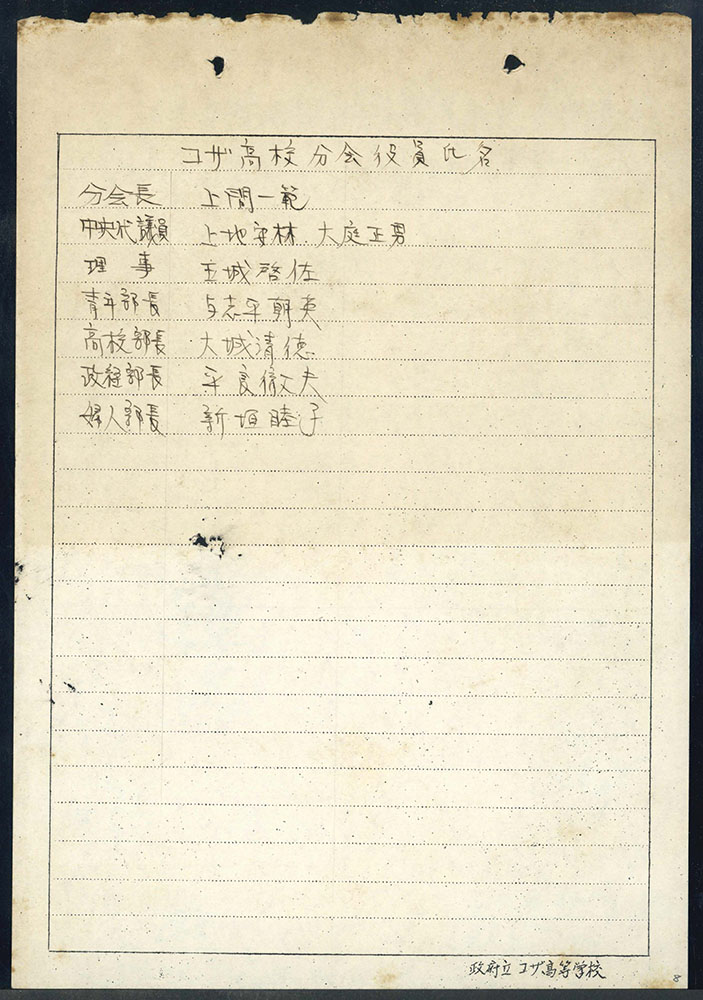 コザ高校分会役員氏名
分会長 上間一範
中央代議員 上地安林 大庭正男
理事 玉城啓佐
青年部長 与志平朝英
高校部長 大城清徳
政経部長 平良徹夫
婦人部長 新垣睦子
政府立コザ高等学校
8